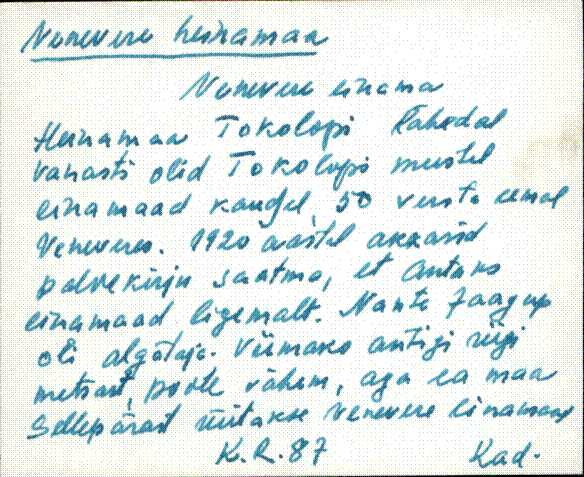 Venevere heinamaa
Venevere einama
Heinamaa Tokolopi lähedal
vanasti olid Tokolopi meestel
einamaad kaugel, 50 versta eemal
Veneveres. 1920 aastel akkasid
palvekirju saatma, et antaks
einamaad ligemalt. Nante Jaagup
oli algataja. Viimaks antigi riigi
metsast, poole vähem, aga ea maa
Sellepärast üitakse Venevere einamaa
K.R. 87 Kad.